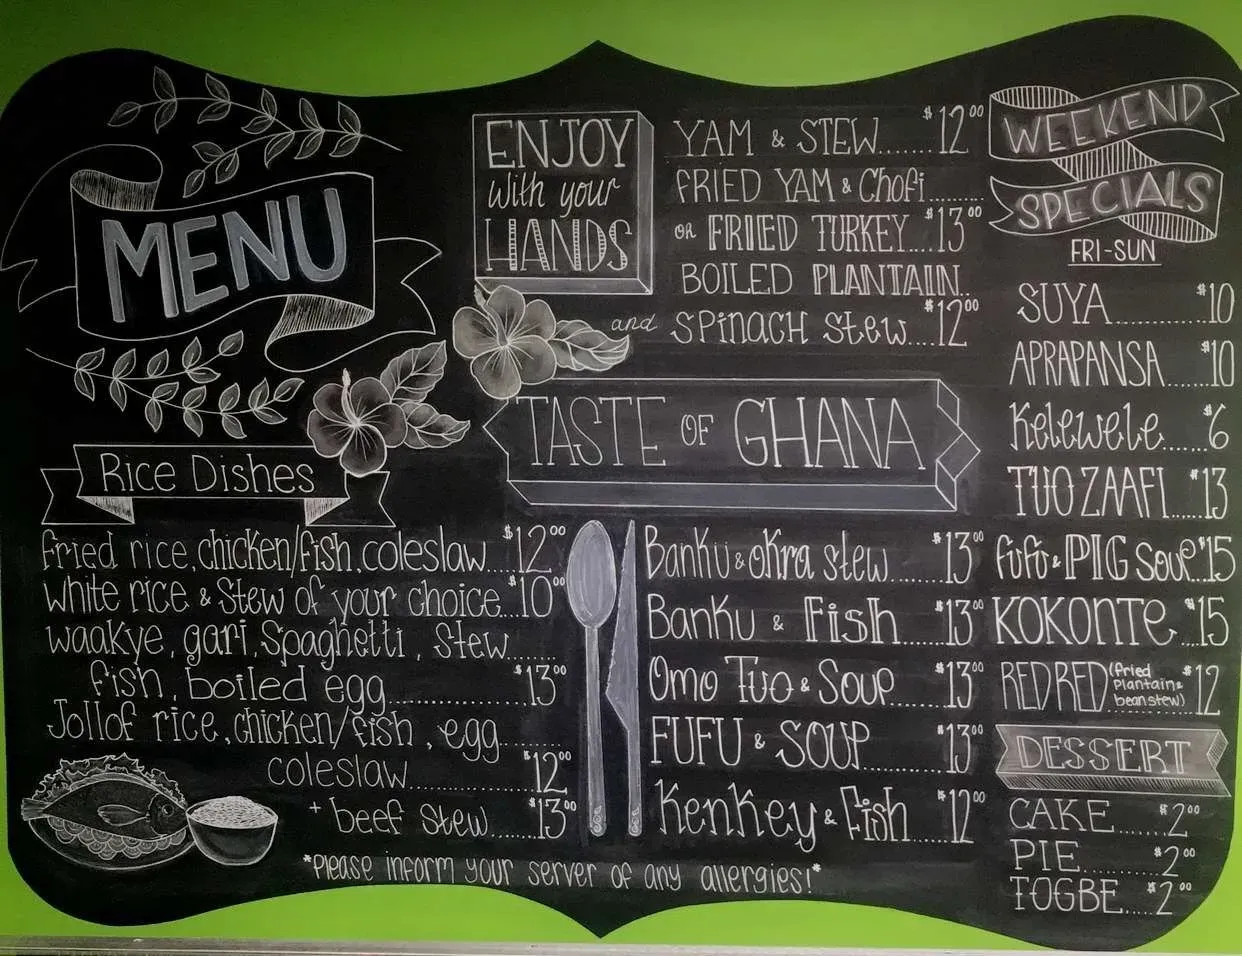 MENU
Rice Dishes
fried rice, chicken/fish, coleslaw...$12⁰⁰
white rice & stew of your choice...$10⁰⁰
waakye, gari, spaghetti, stew......
fish, boiled egg...................$13⁰⁰
Jollof rice, chicken/fish, egg........
coleslaw...............$12⁰⁰
+ beef stew......$13⁰⁰
*Please inform your server of any allergies!*
ENJOY
with your
HANDS
YAM & STEW.......$12⁰⁰
FRIED YAM & Chofi.........
or FRIED TURKEY....$13⁰⁰
BOILED PLANTAIN..
and SPINACH Stew....$12⁰⁰
TASTE OF GHANA
Banku & okra stew.......$13⁰⁰
Banku & Fish.....$13⁰⁰
Omo Tuo & Soup.....$13⁰⁰
FUFU & SOUP..........$13⁰⁰
Kenkey & Fish....$12⁰⁰
WEEKEND
SPECIALS
FRI-SUN
SUYA............$10
APRAPANSA......$10
Kelewele....$6
TUO ZAAFI...$13
fufu & PIG Soup..$15
KOKONTE...$15
RED RED (fried
plantain &
bean stew) $12
DESSERT
CAKE......$2⁰⁰
PIE...........$2⁰⁰
TOGBE.....$2⁰⁰